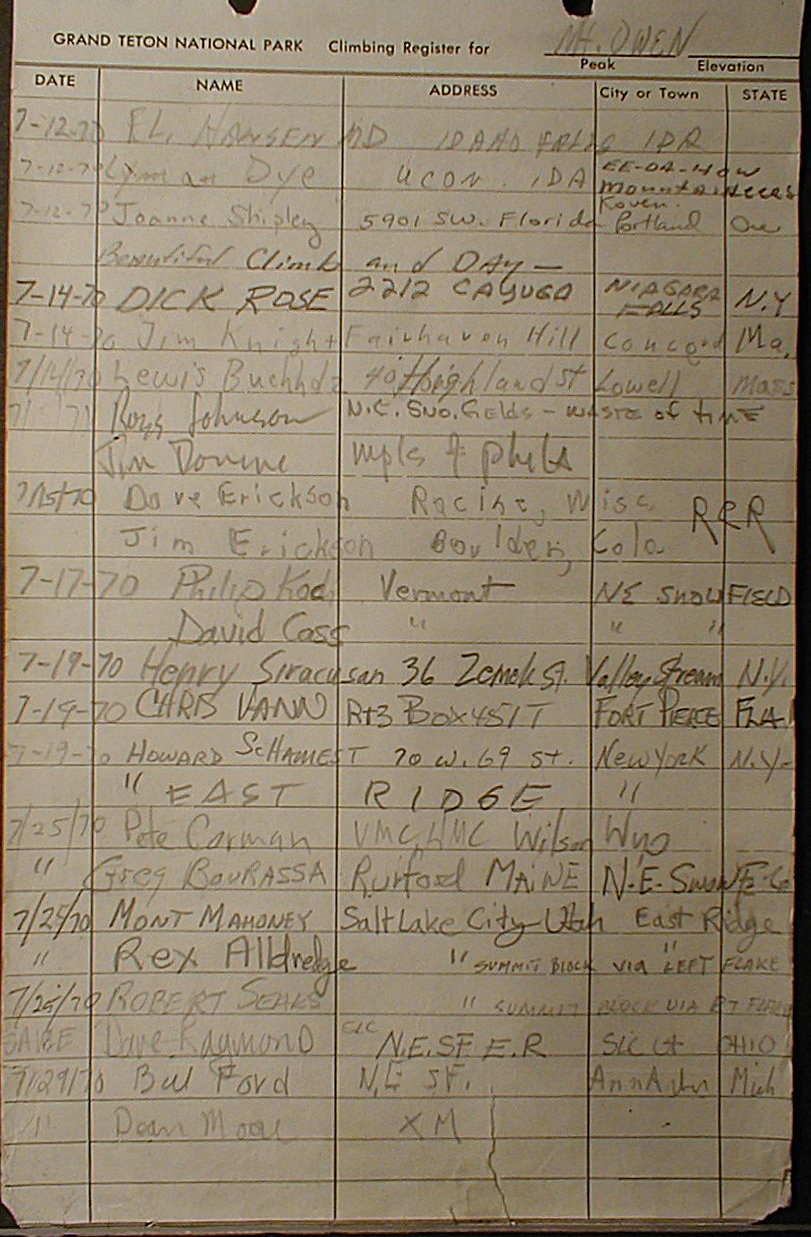 GRAND TETON NATIONAL PARK Climbing Register for Mt. OWEN
Peak Elevation
DATE NAME ADDRESS City or Town STATE
7-12-70 F.L. HANSEN MD IDAHO FALLS IDA
7-12-70 Lyman Dye UCON. IDA EE-DA-HOW
Mountaineers
7-12-70 Joanne Shipley 5901 SW. Florida Portland Ore
Beautiful Climb and DAY —
7-14-70 DICK ROSE 2212 CAYUGA NIAGARA FALLS N.Y
7-14-70 Jim Knight Fairhaven Hill Concord Ma.
7/14/70 Lewis Buchholz 40 Highland st Lowell Mass
Ross Johnson N.E. Sno. fields - WASTE of tIME
Jim mpls & phila
7/15/70 Dave Erickson Racine, Wisc R&R
Jim Erickson Boulder, Colo
7-17-70 Philip Koch Vermont NE SNOWFIELD
David Cass " " "
7-19-70 Henry Siracusan 36 Zemek St. Valley Stream N.Y.
7-19-70 CHRIS VANN Rt3 Box 451T FORT PIERCE FLA!
7-19-70 HOWARD SCHAMEST 70 W. 69 St. New York N.Y-
" EAST RIDGE "
7/25/70 Pete Carman VMC, HMC Wilson Wyo
" Greg BOURASSA Rumford MAINE N.E. 
7/25/70 MONT MAHONEY Salt Lake City-Utah East Ridge
" Rex Alldredge " " SUMMIT BLOCK VIA LEFT FLAKE
7/25/70 ROBERT SEARS " SUMMIT BLOCK VIA RT FLAKE
SAME Dave Raymond N.E.SF E.R SLC Ut OHIO
7/29/70 Bill Ford N.E SF. Ann Arbor Mich
" Dean Moore XM